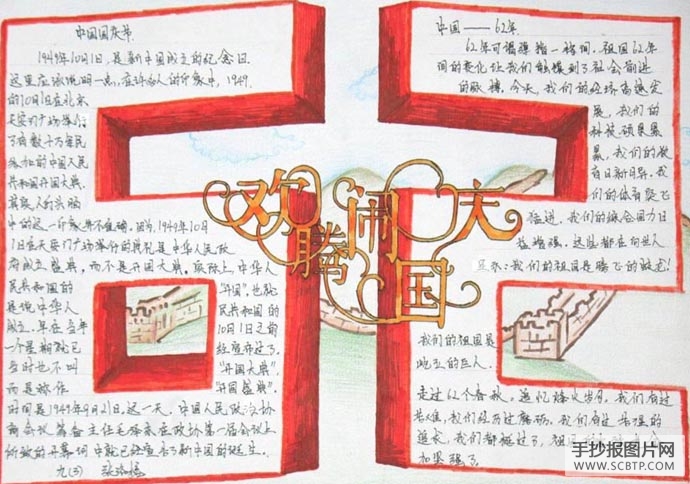 中国国庆节
1949年10月1日,是新中国成立的纪念日.
这里应该说明一点,在许多人的印象中,1949.
的10月1日在北京
天安门广场举行
了有数十万军民
参加的中国人民
共和国开国大典.
其实人们头脑
中的这一印象并不准确.因为,1949年10月
1日在天安门广场举行的典礼是中华人民政
府成立盛典,而不是开国大典.实际上,中华人
民共和国的
"开国".也就
是说中华人
民共和国的
成立.早在当年
10月1日之前
一个星期就已
经宣布过了.
当时也不叫
"开国大典".
而是称作
"开国盛典".
时间是1949年9月21日.这一天.中国人民政治协
商会议筹备主任毛泽东在政协第一届会议上
所致的开幕词中就已经宣告了新中国的诞生.
九(3)
欢腾闹国庆
中国——62年.
62年可谓弹指一挥间.祖国62年
间的变化让我们触摸到了社会前进
的脉搏.今天,我们的经济高速发
展,我们的
科技硕果累
累,我们的教
育日新月异.我
们的体育突飞
猛进.我们的综合国力日
益增强.这些都在向世人
显示:我们的祖国是腾飞的
我们的祖国是
屹立的巨人.
走过62个春秋.追忆烽火岁月,我们有过
苦难,我们经历过磨砺,我们有过
我们都挺过了,
和坚强了.
手抄报图片网
WWW.SCBTP.COM